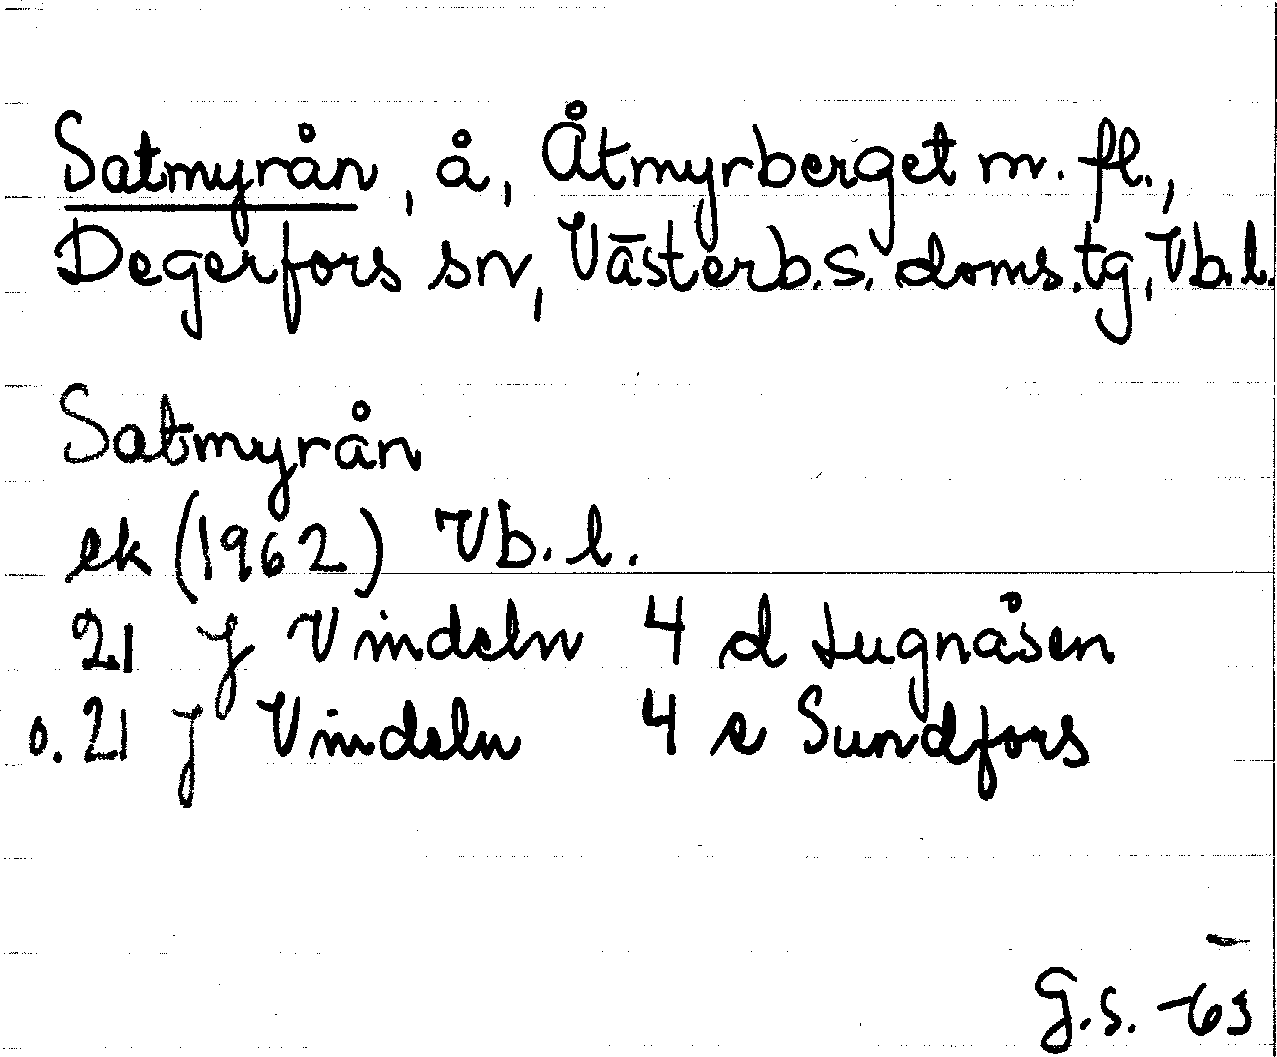 Satmyrån, å, Åtmyrberget m. fl.,
Degerfors sn, Västerb.s. doms.tg, Vb.l.
Satmyrån
ek (1962) Vb. l.
21 J Vindeln 4 d Lugnåsen
o. 21 J Vindeln 4 e Sundfors
G.S. -63